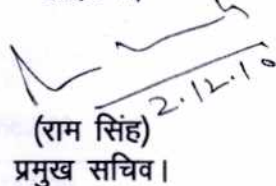 2.12.10
(राम सिंह)
प्रमुख सचिव।